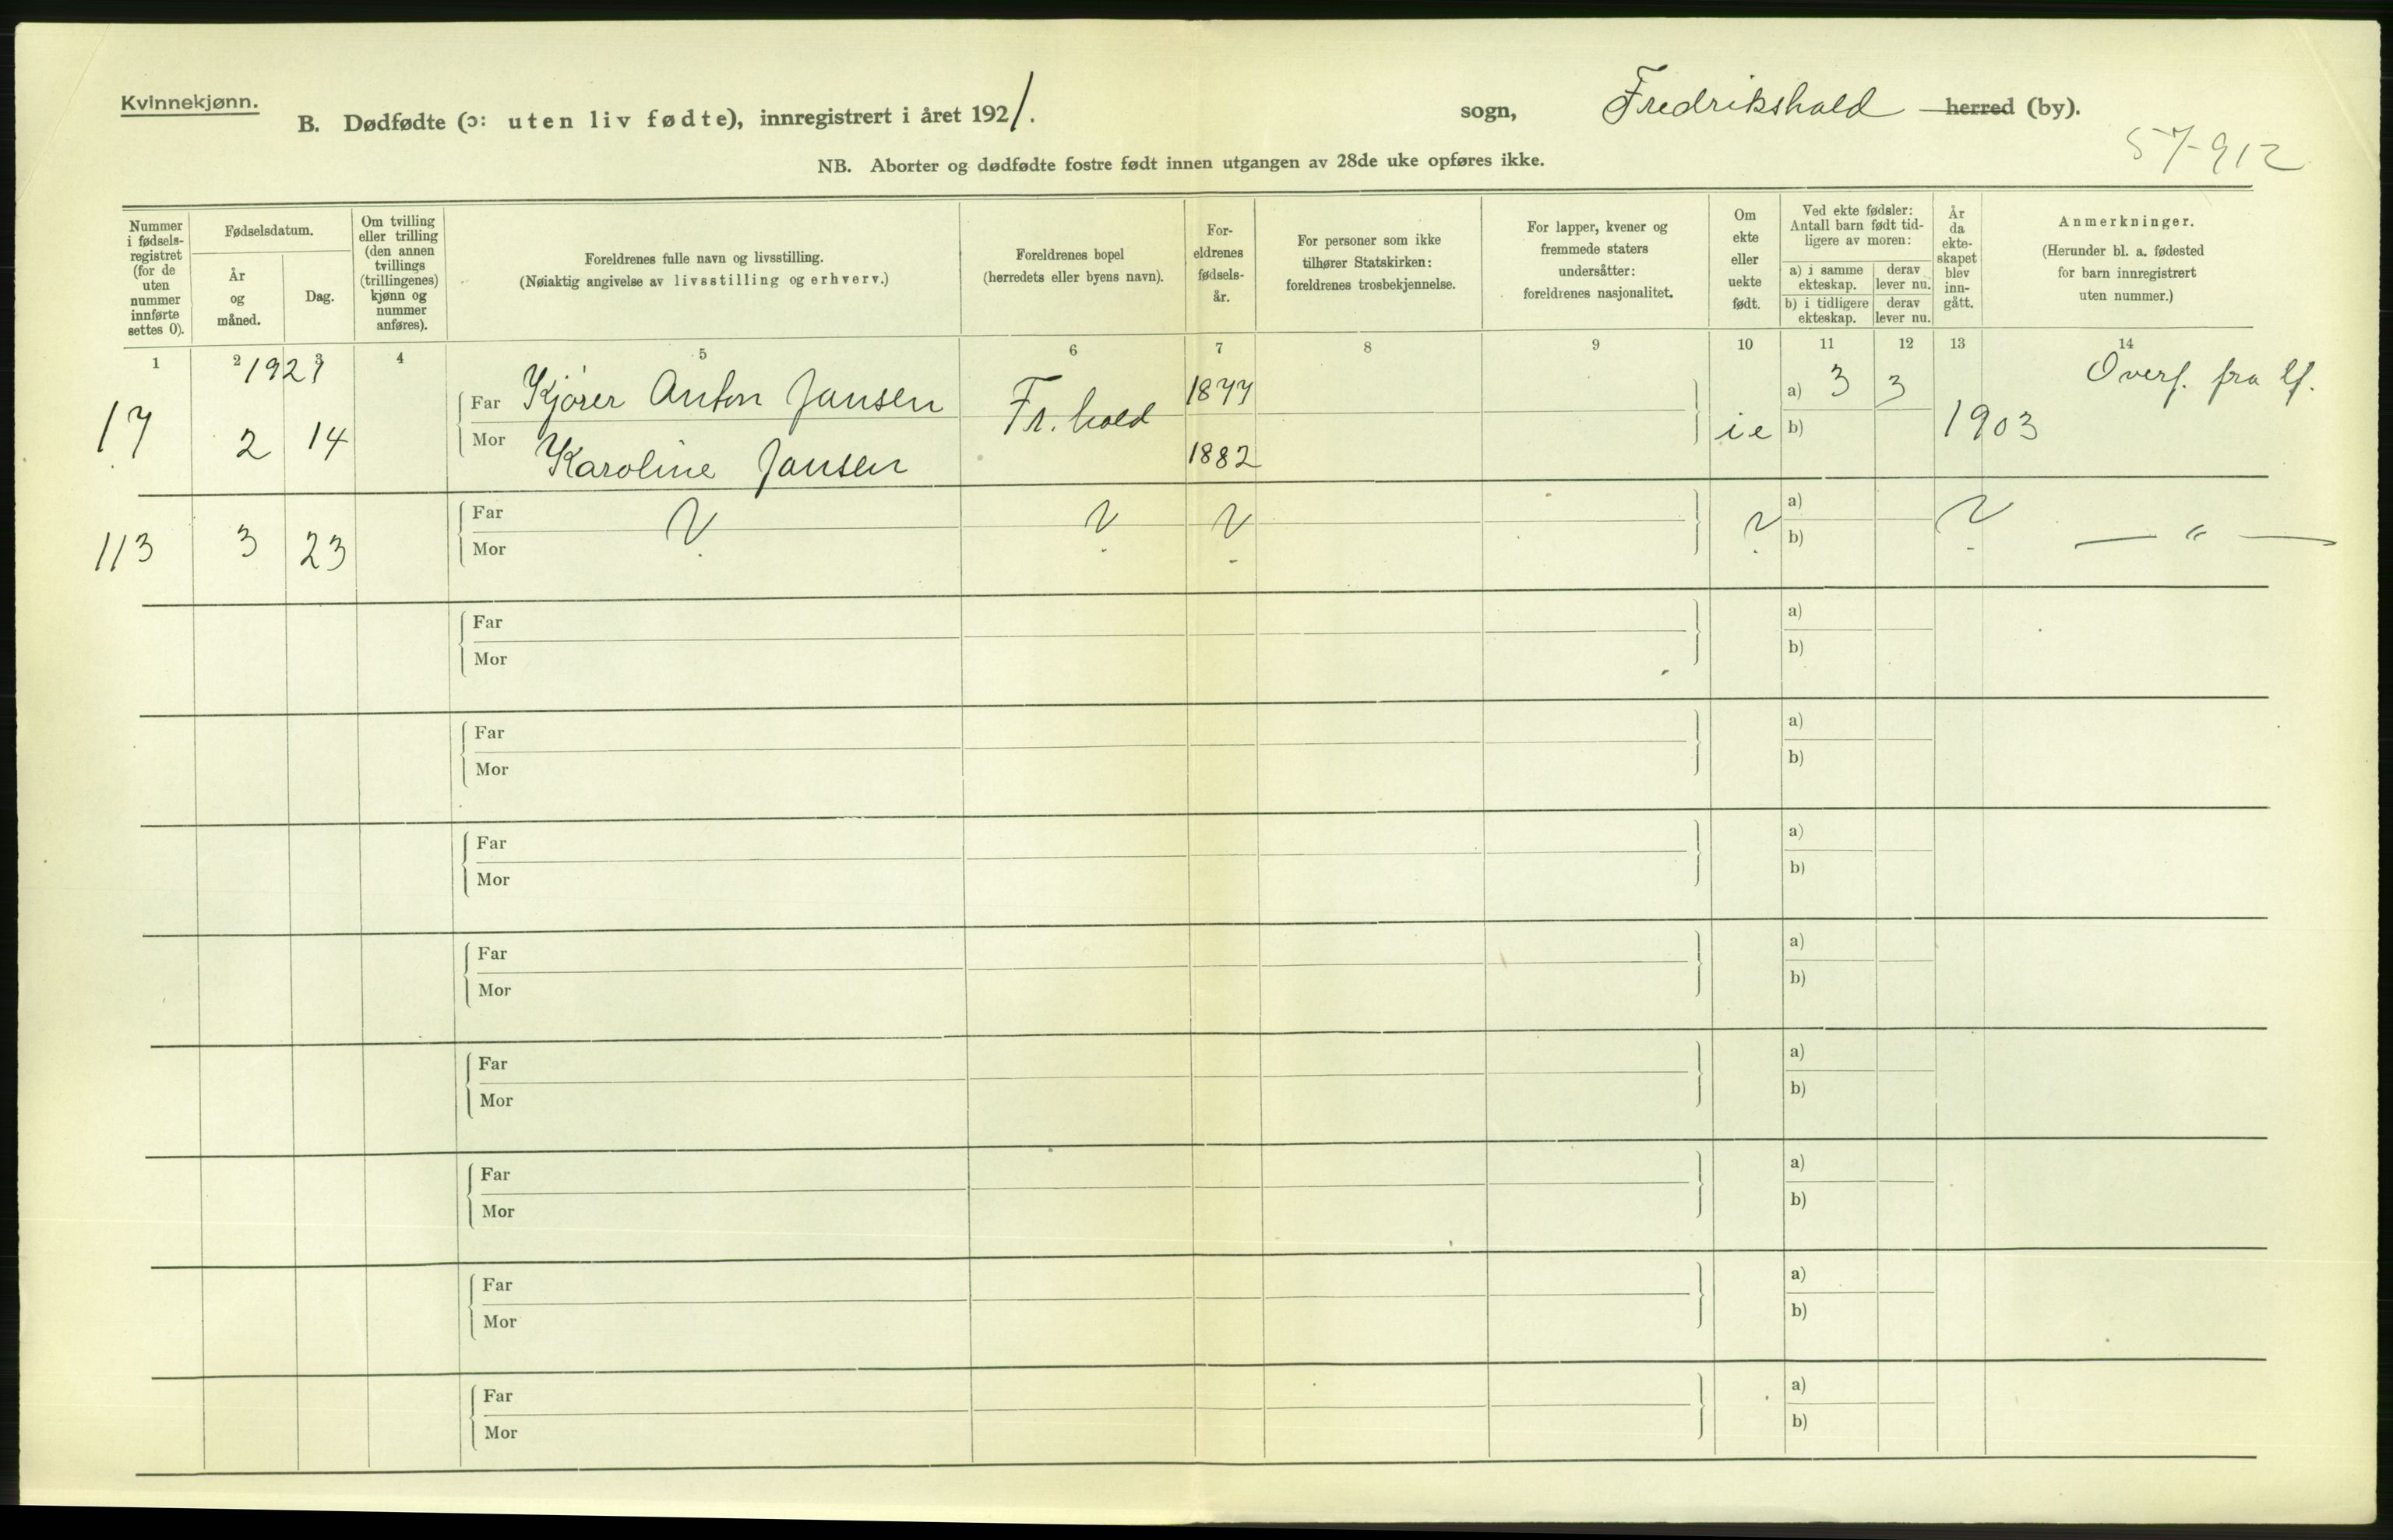 Kvinnekjønn.
B. Dødfødte (ɔ: uten liv fødte), innregistrert i året 1921.
sogn, Fredrikshald herred (by).
57-912
NB. Aborter og dødfødte fostre født innen utgangen av 28de uke opføres ikke.
Nummer
i fødsels-
registret
(for de
uten
nummer
innførte
settes 0).
Fødselsdatum.
År
og
måned.
Dag.
Om tvilling
eller trilling
(den annen
tvillings
(trillingenes)
kjønn og
nummer
anføres).
Foreldrenes fulle navn og livsstilling.
(Nøiaktig angivelse av livsstilling og erhverv.)
Foreldrenes bopel
(herredets eller byens navn).
For-
eldrenes
fødsels-
år.
For personer som ikke
tilhører Statskirken:
foreldrenes trosbekjennelse.
For lapper, kvener og
fremmede staters
undersåtter:
foreldrenes nasjonalitet.
Om
ekte
eller
uekte
født.
Ved ekte fødsler:
Antall barn født tid-
ligere av moren:
a) i samme
ekteskap.
derav
lever nu.
b) i tidligere
ekteskap.
derav
lever nu.
År
da
ekte-
skapet
blev
inn-
gått.
Anmerkninger.
(Herunder bl. a. fødested
for barn innregistrert
uten nummer.)
1 2 3 4 5 6 7 8 9 10 11 12 13 14
1921
17 2 14 Far Kjører Anton Jansen Fr.hald 1877 ie a) 3 3 1903 Overf. fra lf.
Mor Karoline Jansen 1882 b)
113 3 23 Far ? ? ? ? a) ? — " —
Mor b)
Far a)
Mor b)
Far a)
Mor b)
Far a)
Mor b)
Far a)
Mor b)
Far a)
Mor b)
Far a)
Mor b)
Far a)
Mor b)
Far a)
Mor b)